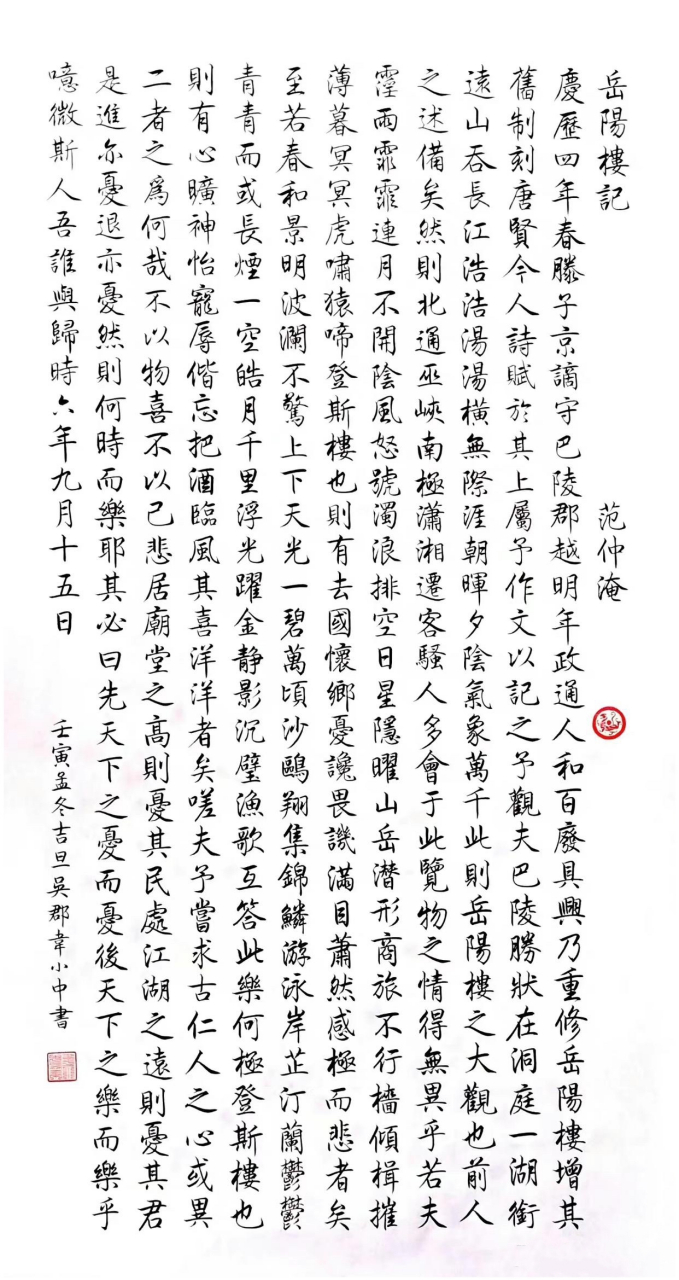 岳陽樓記
范仲淹
慶歷四年春滕子京謫守巴陵郡越明年政通人和百廢具興乃重修岳陽樓增其
舊制刻唐賢今人詩賦於其上屬予作文以記之予觀夫巴陵勝狀在洞庭一湖銜
遠山吞長江浩浩湯湯橫無際涯朝暉夕陰氣象萬千此則岳陽樓之大觀也前人
之述備矣然則北通巫峽南極瀟湘遷客騷人多會于此覽物之情得無異乎若夫
霪雨霏霏連月不開陰風怒號濁浪排空日星隱曜山岳潛形商旅不行檣傾楫摧
薄暮冥冥虎嘯猿啼登斯樓也則有去國懷鄉憂讒畏譏滿目蕭然感極而悲者矣
至若春和景明波瀾不驚上下天光一碧萬頃沙鷗翔集錦鱗游泳岸芷汀蘭鬱鬱
青青而或長煙一空皓月千里浮光躍金静影沉璧漁歌互答此樂何極登斯樓也
則有心曠神怡寵辱偕忘把酒臨風其喜洋洋者矣嗟夫予嘗求古仁人之心或異
二者之為何哉不以物喜不以己悲居廟堂之高則憂其民處江湖之遠則憂其君
是進亦憂退亦憂然則何時而樂耶其必曰先天下之憂而憂後天下之樂而樂乎
噫微斯人吾誰與歸時六年九月十五日
壬寅孟冬吉旦吳郡韋小中書